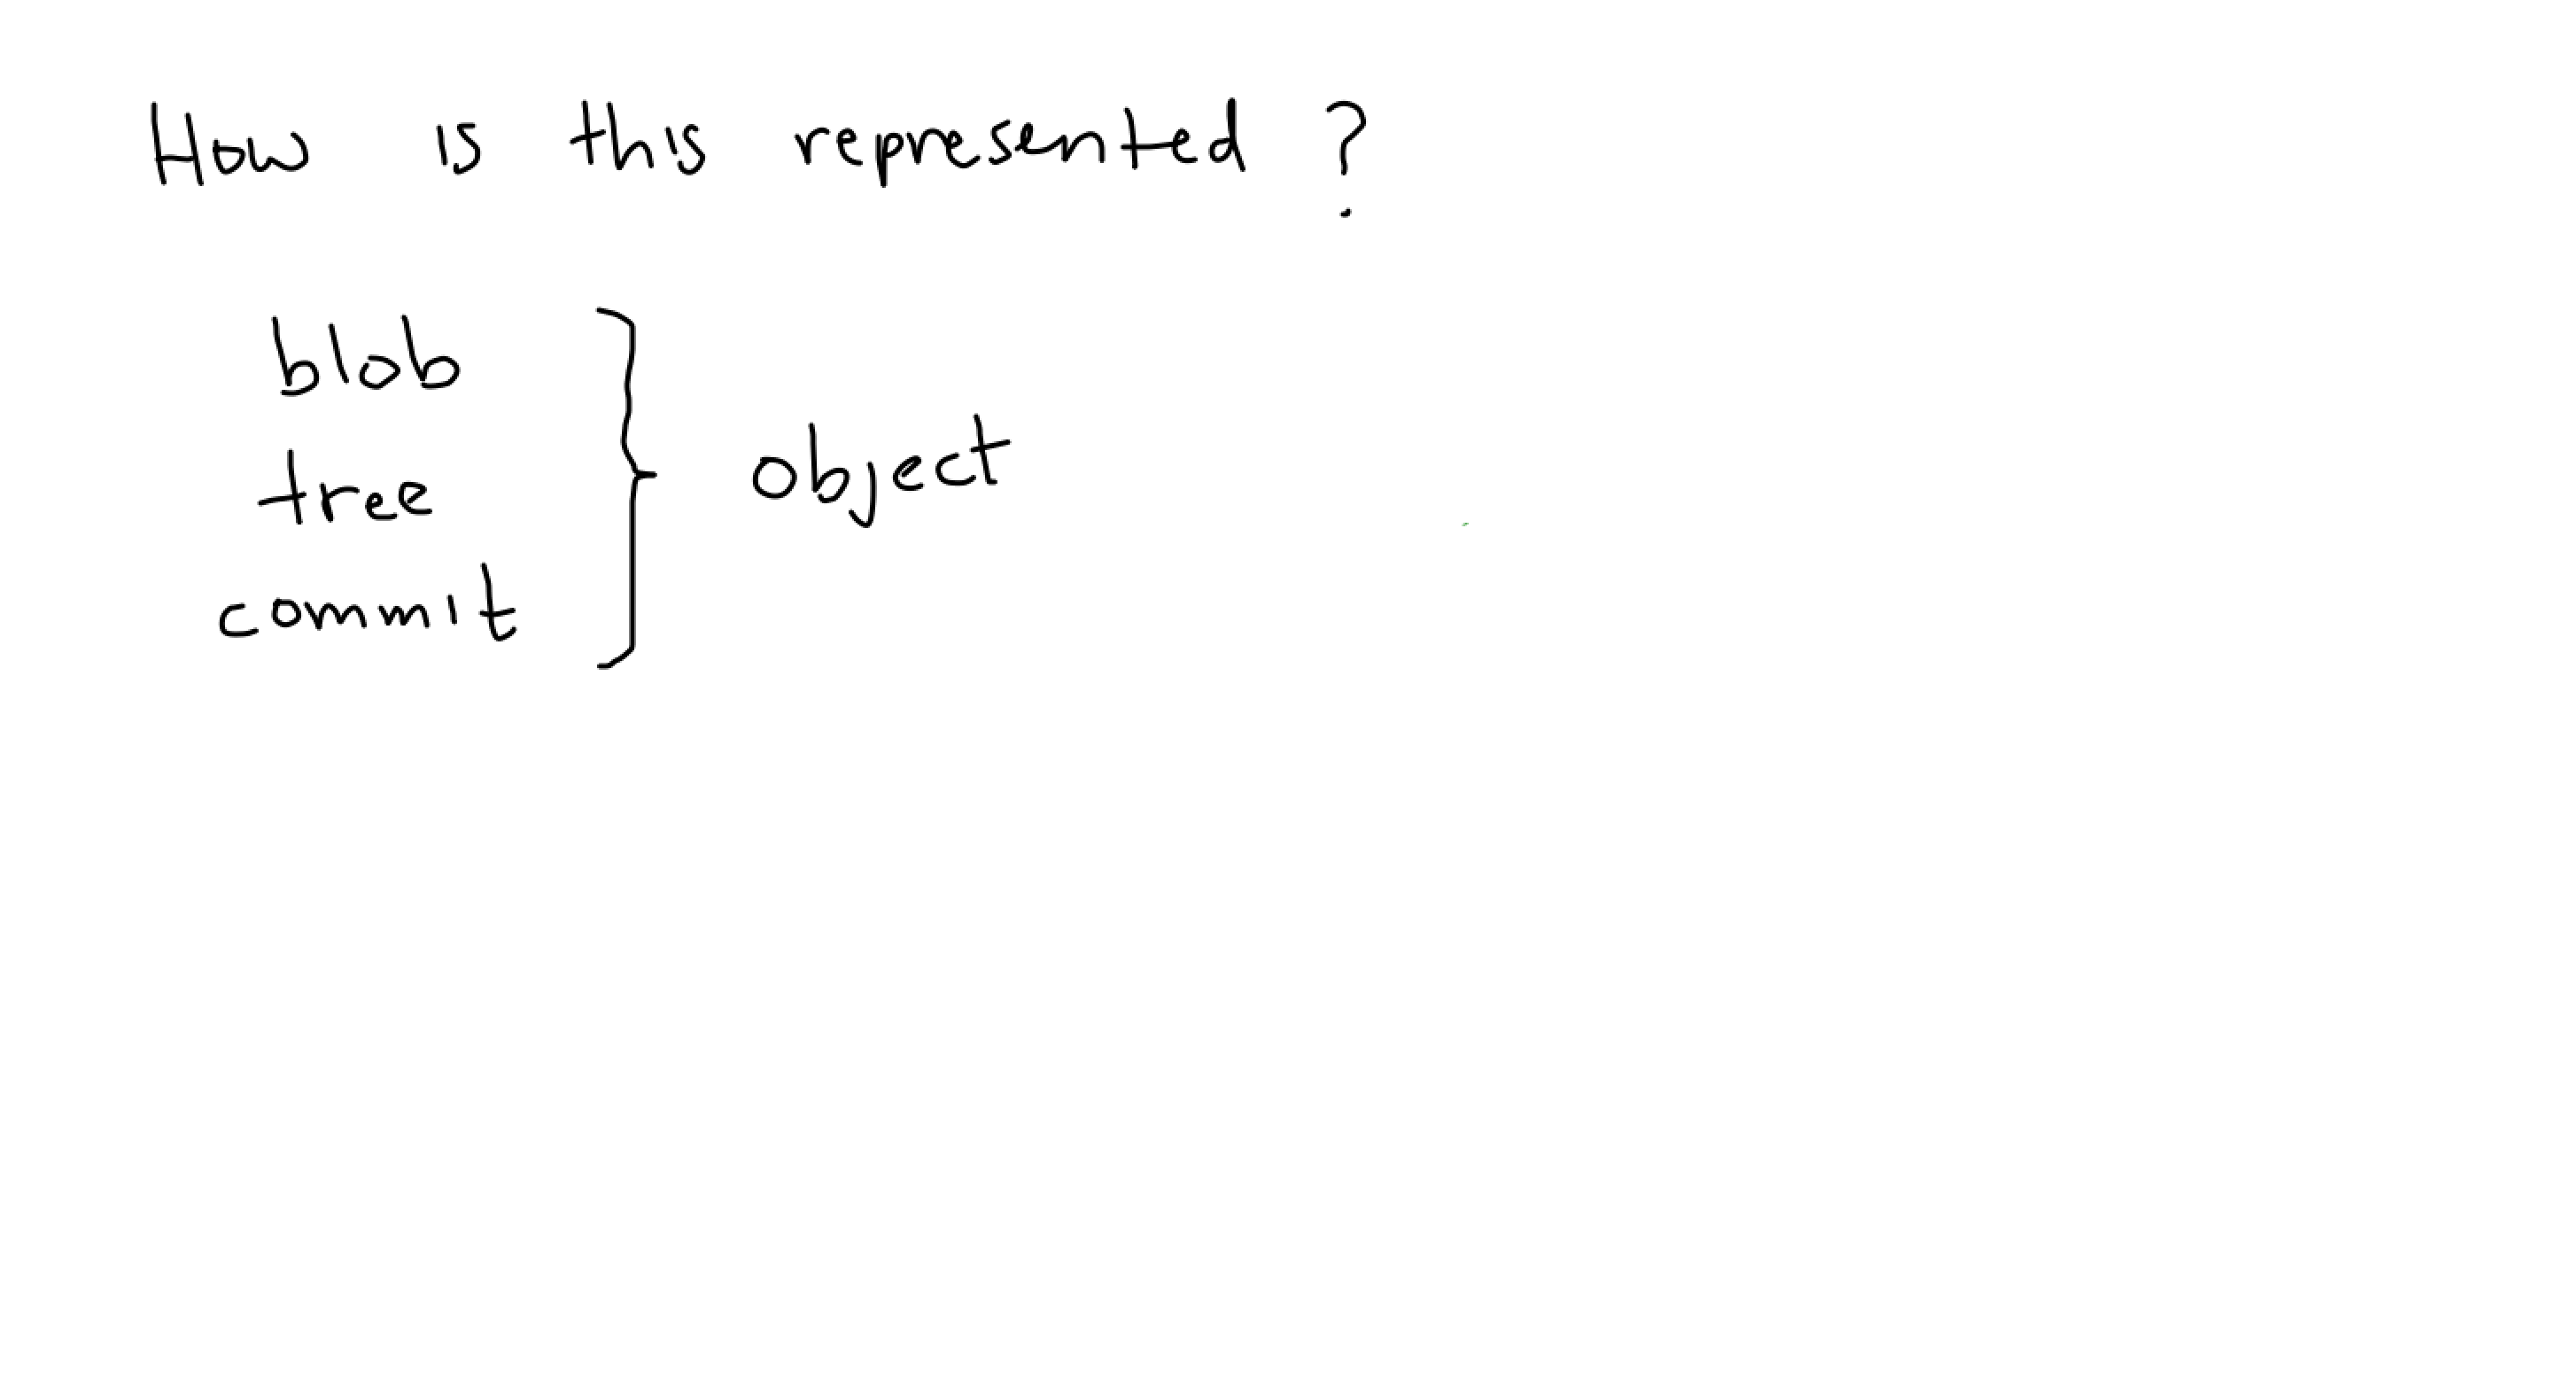 How is this represented ?
blob
tree
commit
object